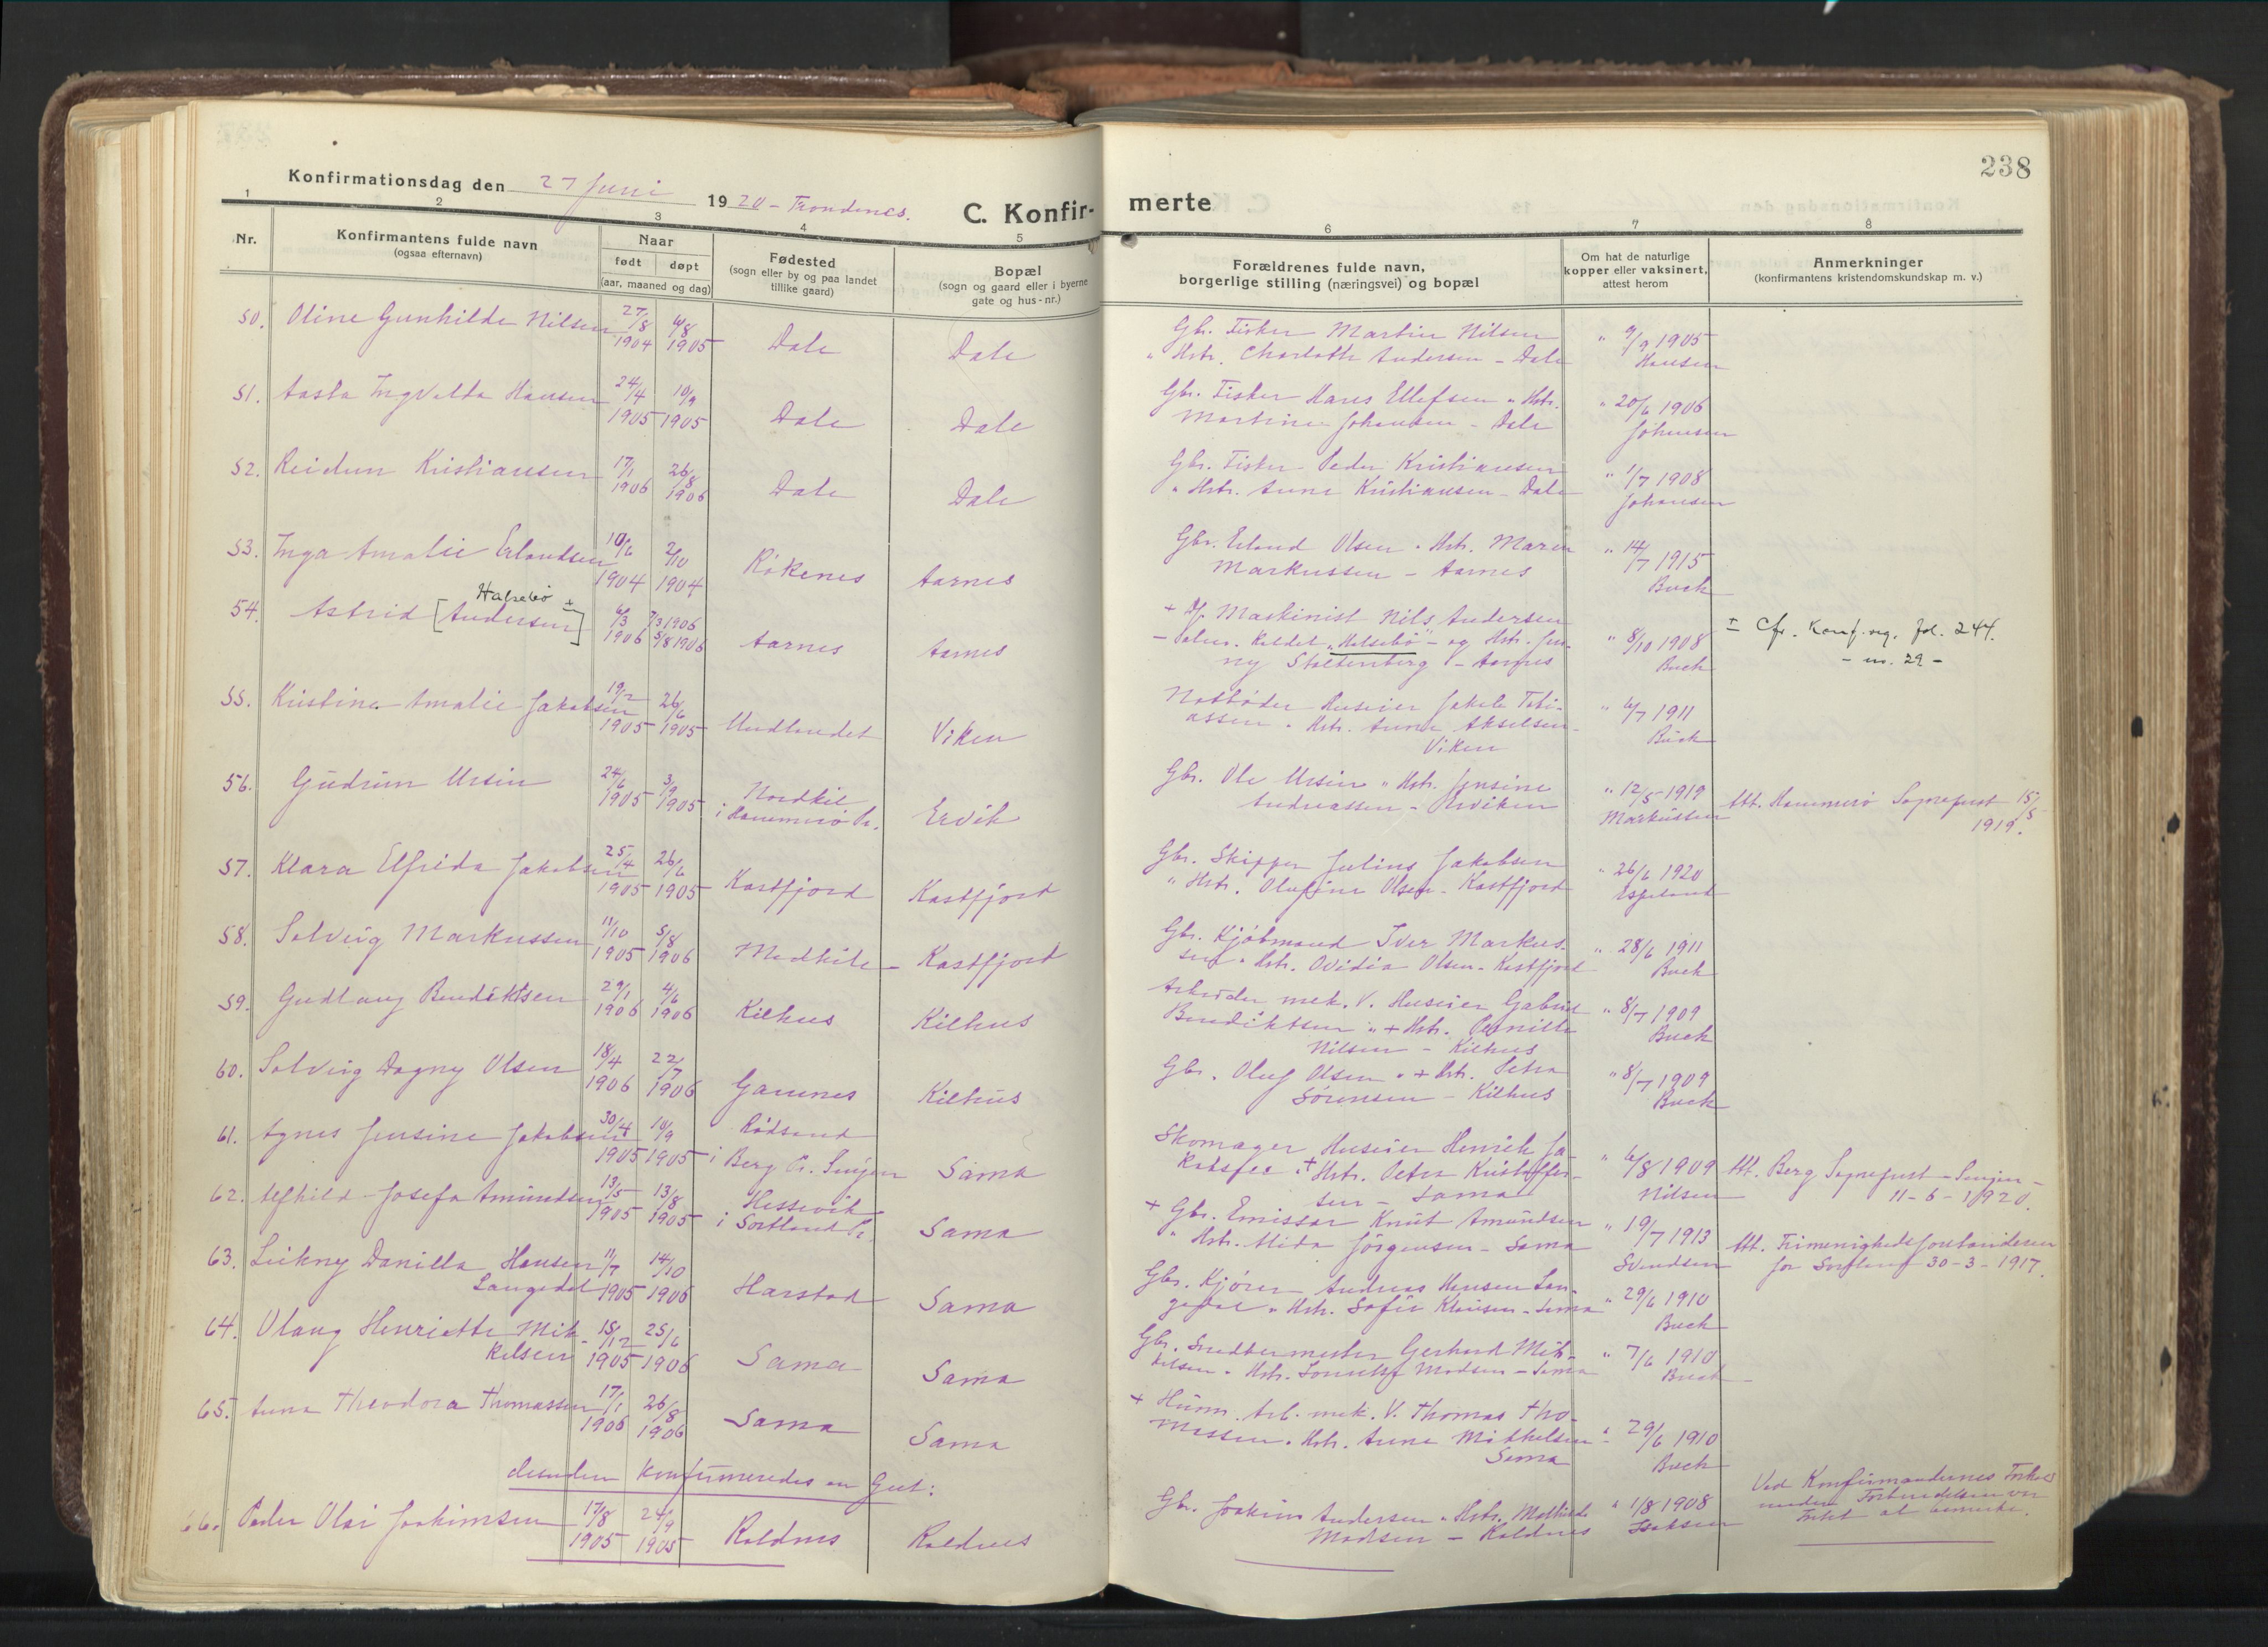 238
Konfirmationsdag den 27 Juni 1920 – Trondenes.
C. Konfir-
merte
1 2 3 4 5 6 7 8
Nr.
Konfirmantens fulde navn
(ogsaa efternavn)
Naar
født døpt
(aar, maaned og dag)
Fødested
(sogn eller by og paa landet
tillike gaard)
Bopæl
(sogn og gaard eller i byerne
gate og hus-nr.)
Forældrenes fulde navn,
borgerlige stilling (næringsvei) og bopæl
Om hat de naturlige
kopper eller vaksinert,
attest herom
Anmerkninger
(konfirmantens kristendomskundskap m. v.)
50. Oline Gunhilde Nilsen 27/8 1904 1905 Dale Dale
Gbr. Fisker Martin Nilsen " 9/9 1905
" Hstr. Charloth Andersen – Dale Hansen
51. Aasta Ingvalda Hansen 24/4 1905 10/9 1905 Dale Dale
Gbr. Fisker Hans Ellefsen " Hstr. " 20/6 1906
Martine Johansen – Dale Johansen
52. Reidun Kristiansen 17/1 1906 26/8 1906 Dale Dale
Gbr. Fisker Peder Kristiansen " 1/7 1908
" Hstr. Anne Kristiansen – Dale Johansen
53. Inga Amalie Erlandsen 10/6 1904 2/10 1904 Røkenes Aarnes
Gbr. Erland Olsen " Hstr. Maren " 14/7 1915
Markussen – Aarnes Buck
Halsebø ±
54. Astrid [Andersen] 6/3 1906 7/3 1906 5/8 1906 Aarnes Aarnes
+ Maskinist Nils Andersen
kaldet "Halsebø" – og Hstr. Jen- " 8/10 1908
ny Stoltenberg – Aarnes Buck
± Cfr. Konf.reg. fol. 244.
– nr. 29 –
55. Kristine Amalie Jakobsen 19/2 1905 26/6 1905 Undlandet Viken
Notbøder Huseier Jakob Tobi- " 6/7 1911
assen " Hstr. Anna Akselsen – Buck
Viken
56. Gudrun Ursin 24/6 1905 3/9 1905 Nordkil i Hammerø Pr. Ervik
Gbr. Ole Ursin " Hstr. Jensine " 12/5 1919
Andreassen – Erviken Markussen
Att. Hammerø Sogneprest 15/5
1919.
57. Klara Elfrida Jakobsen 25/4 1905 26/6 1905 Kastfjord Kastfjord
Gbr. Skipper Julius Jakobsen " 26/6 1920
" Hstr. Olufine Olsen – Kastfjord Espeland
58. Solveig Markussen 11/10 1905 5/8 1906 Medkile – Kastfjord
Gbr. Kjøbmand Iver Markus- " 28/6 1911
sen " Hstr. Ovidia Olsen – Kastfjord Buck
59. Gudlaug Bendiktsen 29/1 1906 4/6 1906 Kilhus Kilhus
Arbeider mek. V. Huseier Gabriel " 8/7 1909
Bendiktsen " + Hstr. Pernille Buck
Nilsen – Kilhus
60. Solveig Dagny Olsen 18/4 1906 22/7 1906 Gamnes Kilhus
Gbr. Oluf Olsen " + Hstr. Petra " 8/7 1909
Sørensen – Kilhus Buck
61. Agnes Jensine Jakobsen 30/4 1905 10/9 1905 Rødsand i Berg Pr. Senjen Sama
Skomager Huseier Henrik Ja-
kobsen " + Hstr. Petra Kristoffer- " 6/8 1909
sen – Sama Nilsen
Att. Berg Sogneprest – Senjen –
11-6-1920.
62. Alfhild Josefa Amundsen 13/5 1905 13/8 1905 Hessevik i Sortland Pr. Sama
+ Gbr. Emissær Knut Amundsen " 19/7 1913
" Hstr. Alida Jørgensen – Sama Svendsen
Att. Frimenighedsforstanderen
for Sortland 30-3-1917.
63. Leikny Danilla Hansen 11/7 1905 14/10 1906 Harstad Sama
Langedal
Gbr. Kjører Andreas Hansen Lan- " 29/6 1910
gedal " Hstr. Sofie Klausen – Sama Buck
64. Olaug Henriette Mik- 15/12 1905 25/6 1906 Sama Sama
kelsen
Gbr. Snedkermester Gerhard Mik- " 7/6 1910
kelsen " Hstr. Madsen – Sama Buck
65. Anna Theodora Thomassen 17/1 1906 26/8 1906 Sama Sama
+ Husm. Arb. mek. V. Thomas Tho-
massen " Hstr. Anne Mikkelsen – " 29/6 1910
Sama Buck
desuden konfirmeredes en Gut:
66. Peder Olai Joakimsen 17/8 1905 24/9 1905 Koldnes Koldnes
Gbr. Joakim Andersen " Hstr. Mathilde " 1/8 1908
Madsen – Koldnes Isaksen
Ved Konfirmandernes Forhold
under Forberedelsen var
Intet at bemerke.